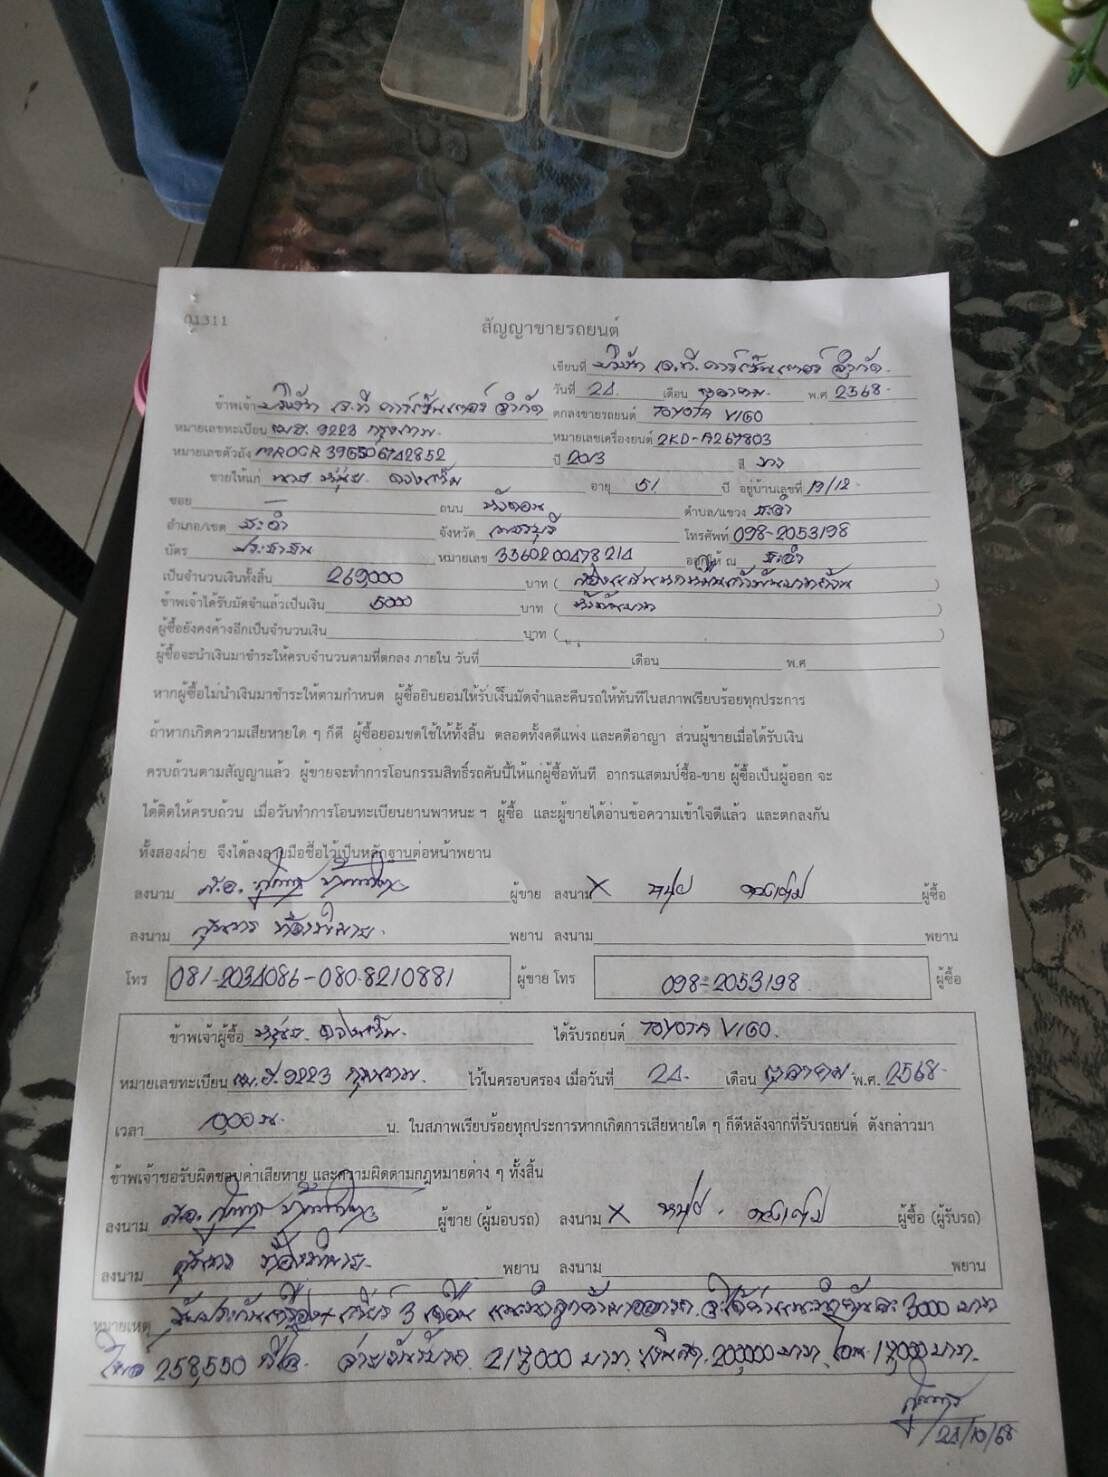 01311
สัญญาขายรถยนต์
เขียนที่ บริษัท เจ.ที. คาร์เซ็นเตอร์ จำกัด
วันที่ 24 เดือน ตุลาคม พ.ศ 2568
ข้าพเจ้า บริษัท เจ.ที คาร์เซ็นเตอร์ จำกัด ตกลงขายรถยนต์ TOYOTA VIGO
หมายเลขทะเบียน 9223 กรุงเทพ หมายเลขเครื่องยนต์ 2KD-A267803
หมายเลขตัวถัง MROCR396506742852 ปี 2013 สี เทา
ขายให้แก่ อายุ 51 ปี อยู่บ้านเลขที่ 19/12
ซอย - ถนน ตำบล/แขวง ชะอำ
อำเภอ/เขต ชะอำ จังหวัด เพชรบุรี โทรศัพท์ 098-2053198
บัตร ประชาชน หมายเลข 3360200478214 ออกให้ ณ ชะอำ
เป็นจำนวนเงินทั้งสิ้น 269000 บาท (สองแสนหกหมื่นเก้าพันบาทถ้วน)
ข้าพเจ้าได้รับมัดจำแล้วเป็นเงิน 5000 บาท (ห้าพันบาท)
ผู้ซื้อยังคงค้างอีกเป็นจำนวนเงิน บาท ( )
ผู้ซื้อจะนำเงินมาชำระให้ครบจำนวนตามที่ตกลง ภายใน วันที่ เดือน พ.ศ
หากผู้ซื้อไม่นำเงินมาชำระให้ตามกำหนด ผู้ซื้อยินยอมให้รับเงินมัดจำและคืนรถให้ทันทีในสภาพเรียบร้อยทุกประการ
ถ้าหากเกิดความเสียหายใด ๆ ก็ดี ผู้ซื้อยอมชดใช้ให้ทั้งสิ้น ตลอดทั้งคดีแพ่ง และคดีอาญา ส่วนผู้ขายเมื่อได้รับเงิน
ครบถ้วนตามสัญญาแล้ว ผู้ขายจะทำการโอนกรรมสิทธิ์รถคันนี้ให้แก่ผู้ซื้อทันที อากรแสตมป์ซื้อ-ขาย ผู้ซื้อเป็นผู้ออก จะ
ได้ติดให้ครบถ้วน เมื่อวันทำการโอนทะเบียนยานพาหนะ ฯ ผู้ซื้อ และผู้ขายได้อ่านข้อความเข้าใจดีแล้ว และตกลงกัน
ทั้งสองฝ่าย จึงได้ลงลายมือชื่อไว้เป็นหลักฐานต่อหน้าพยาน
ลงนาม ผู้ขาย ลงนาม X ผู้ซื้อ
ลงนาม พยาน ลงนาม พยาน
โทร 081-2034086-080-8210881 ผู้ขาย โทร 098-2053198 ผู้ซื้อ
ข้าพเจ้าผู้ซื้อ ได้รับรถยนต์ TOYOTA VIGO.
หมายเลขทะเบียน 9223 กรุงเทพ. ไว้ในครอบครอง เมื่อวันที่ 24 เดือน ตุลาคม พ.ศ. 2568
เวลา น. ในสภาพเรียบร้อยทุกประการหากเกิดการเสียหายใด ๆ ก็ดีหลังจากที่รับรถยนต์ ดังกล่าวมา
ข้าพเจ้าขอรับผิดชอบค่าเสียหาย และความผิดตามกฎหมายต่าง ๆ ทั้งสิ้น
ลงนาม ผู้ขาย (ผู้มอบรถ) ลงนาม X ผู้ซื้อ (ผู้รับรถ)
ลงนาม พยาน ลงนาม พยาน
หมายเหตุ รับประกันเครื่อง+เกียร์ 3 เดือน แนะนำลูกค้ามาออกรถ ได้ค่าแนะนำคันละ 3000 บาท
258,550 217,000 บาท เงินสด 200,000 บาท โอน 17,000 บาท
24/10/68